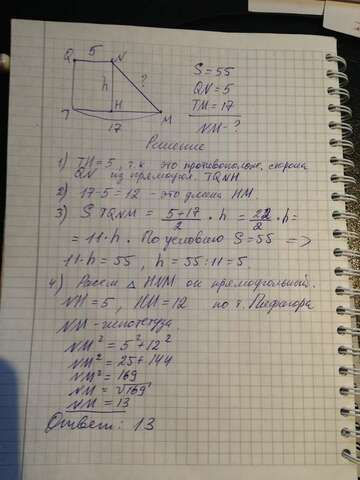 Q 5 N
h ?
T H M
17
S = 55
QN = 5
TM = 17
NM - ?
Решение
1) TH = 5, т.к. это противополож. сторона
QN из прямоугол. TQNH
2) 17-5 = 12 - это длина HM.
3) S TQNM = 5+17/2 · h = 22/2 · h =
= 11·h. По условию S=55 =>
11·h = 55, h = 55:11 = 5
4) Рассм △ HNM он прямоугольный.
NH = 5, HM = 12 по т. Пифагора
NM - гипотетуза
NM² = 5² + 12²
NM² = 25 + 144
NM² = 169
NM = √169
NM = 13
Ответ: 13